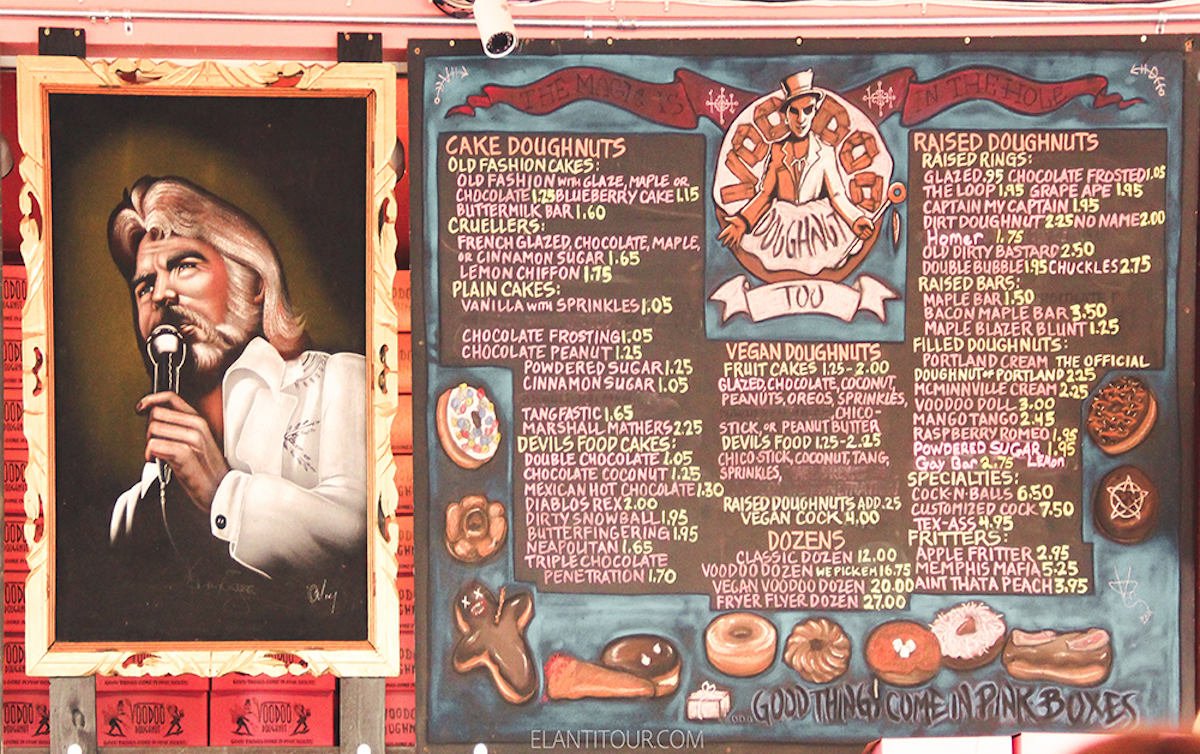 THE MAGIC IS
IN THE HOLE
VOODOO
DOUGHNUT
TOO
CAKE DOUGHNUTS
OLD FASHION CAKES:
OLD FASHION WITH GLAZE, MAPLE OR
CHOCOLATE 1.25 BLUEBERRY CAKE 1.15
BUTTERMILK BAR 1.60
CRUELLERS:
FRENCH GLAZED, CHOCOLATE, MAPLE,
OR CINNAMON SUGAR 1.65
LEMON CHIFFON 1.75
PLAIN CAKES:
VANILLA WITH SPRINKLES 1.05
CHOCOLATE FROSTING 1.05
CHOCOLATE PEANUT 1.25
POWDERED SUGAR 1.25
CINNAMON SUGAR 1.05
TANGFASTIC 1.65
MARSHALL MATHERS 2.25
DEVILS FOOD CAKES:
DOUBLE CHOCOLATE 1.05
CHOCOLATE COCONUT 1.25
MEXICAN HOT CHOCOLATE 1.30
DIABLOS REX 2.00
DIRTY SNOWBALL 1.95
BUTTERFINGERING 1.95
NEAPOLITAN 1.65
TRIPLE CHOCOLATE
PENETRATION 1.70
VEGAN DOUGHNUTS
FRUIT CAKES 1.25-2.00
GLAZED, CHOCOLATE, COCONUT,
PEANUTS, OREOS, SPRINKLES,
, CHICO-
STICK, OR PEANUT BUTTER
DEVILS FOOD 1.25-2.25
CHICO STICK, COCONUT, TANG,
SPRINKLES,
RAISED DOUGHNUTS ADD .25
VEGAN COCK 4.00
DOZENS
CLASSIC DOZEN 12.00
VOODOO DOZEN WE PICK EM 16.75
VEGAN VOODOO DOZEN 20.00
FRYER FLYER DOZEN 27.00
RAISED DOUGHNUTS
RAISED RINGS:
GLAZED .95 CHOCOLATE FROSTED 1.05
THE LOOP 1.95 GRAPE APE 1.95
CAPTAIN MY CAPTAIN 1.95
DIRT DOUGHNUT 2.25 NO NAME 2.00
Homer 1.75
OLD DIRTY BASTARD 2.50
DOUBLE BUBBLE 1.95 CHUCKLES 2.75
RAISED BARS:
MAPLE BAR 1.50
BACON MAPLE BAR 3.50
MAPLE BLAZER BLUNT 1.25
FILLED DOUGHNUTS:
PORTLAND CREAM THE OFFICIAL
DOUGHNUT OF PORTLAND 2.25
MCMINNVILLE CREAM 2.25
VOODOO DOLL 3.00
MANGO TANGO 2.45
RASPBERRY ROMEO 1.95
POWDERED SUGAR 1.95
Gay Bar 2.75 Lemon
SPECIALTIES:
COCK-N-BALLS 6.50
CUSTOMIZED COCK 7.50
TEX-ASS 4.95
FRITTERS:
APPLE FRITTER 2.95
MEMPHIS MAFIA 5.25
AINT THAT A PEACH 3.95
...GOOD THINGS COME IN PINK BOXES
VOODOO
DOUGHNUT
GOOD THINGS COME IN PINK BOXES
VOODOO
DOUGHNUT
GOOD THINGS COME IN PINK BOXES
ELANTITOUR.COM